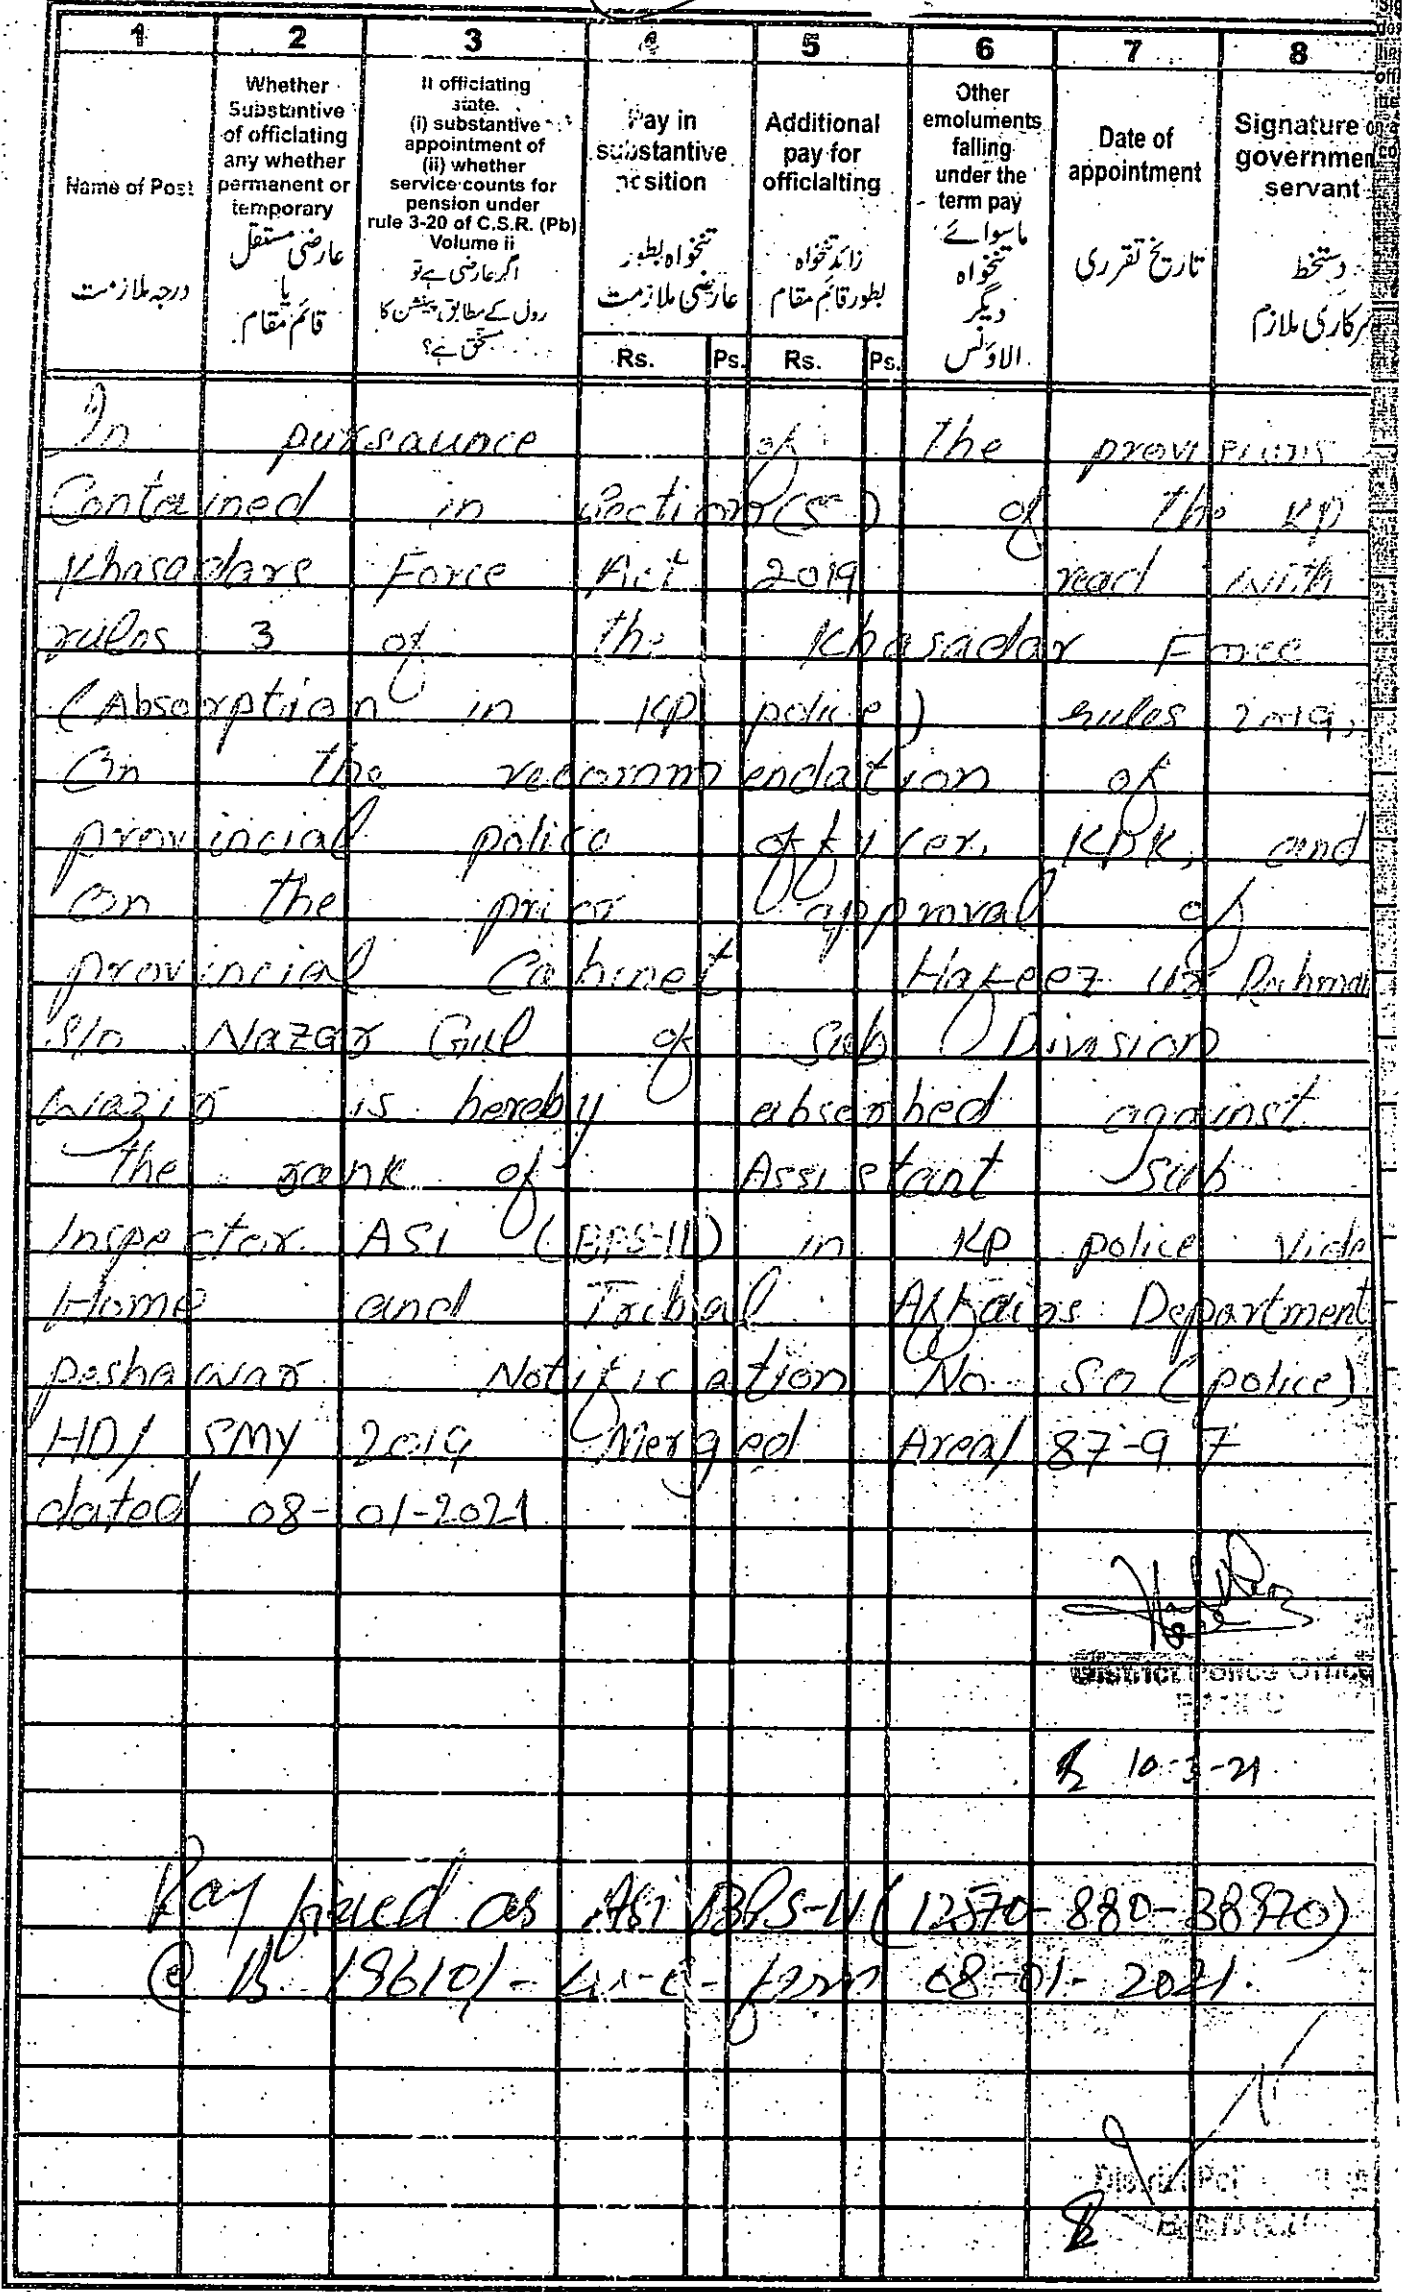 1 2 3 4 5 6 7 8
Name of Post
درجہ ملازمت
Whether
Substantive
of officlating
any whether
permanent or
temporary
عارضی مستقل
یا
قائم مقام
II officlating
state.
(i) substantive
appointment of
(ii) whether
service counts for
pension under
rule 3-20 of C.S.R. (Pb)
Volume ii
اگر عارضی ہے تو
رول کے مطابق پینشن کا
مستحق ہے؟
Pay in
substantive
position
تنخواہ بطور
عارضی ملازمت
Rs. Ps.
Additional
pay for
officlalting
زائد تنخواہ
بطور قائم مقام
Rs. Ps.
Other
emoluments
falling
under the
term pay
ماسوائے
تنخواہ
دیگر
الاؤنس
Date of
appointment
تاریخ تقرری
Signature
governmen
servant
دستخط
سرکاری ملازم
In pursaunce of the provisions
Contained in Section (5) of the KP
Khasadars Force Act 2019 read with
rules 3 of the Khasadar Force
(Absorption in KP police) rules 2019,
On the recommendation of
provincial police officer, KPK, and
on the prior approval of
provincial Cabinet Hafeez ur Rahman
S/o Nazar Gul of Sub Division
wazir is hereby absorbed against
the rank of Assistant Sub
Inspector ASI (BPS-11) in KP police vide
Home and Tribal Affairs Department
peshawar Notification No So (police)
HD/ SMY 2019 Merged Area/ 87-97
dated 08-01-2021
District Police Office
BANNU
10-3-21
Pay fixed as ASI BPS-11 (12570-880-38970)
@ Rs 19610/- w-e-from 08-01-2021.
District Pol
BANNU